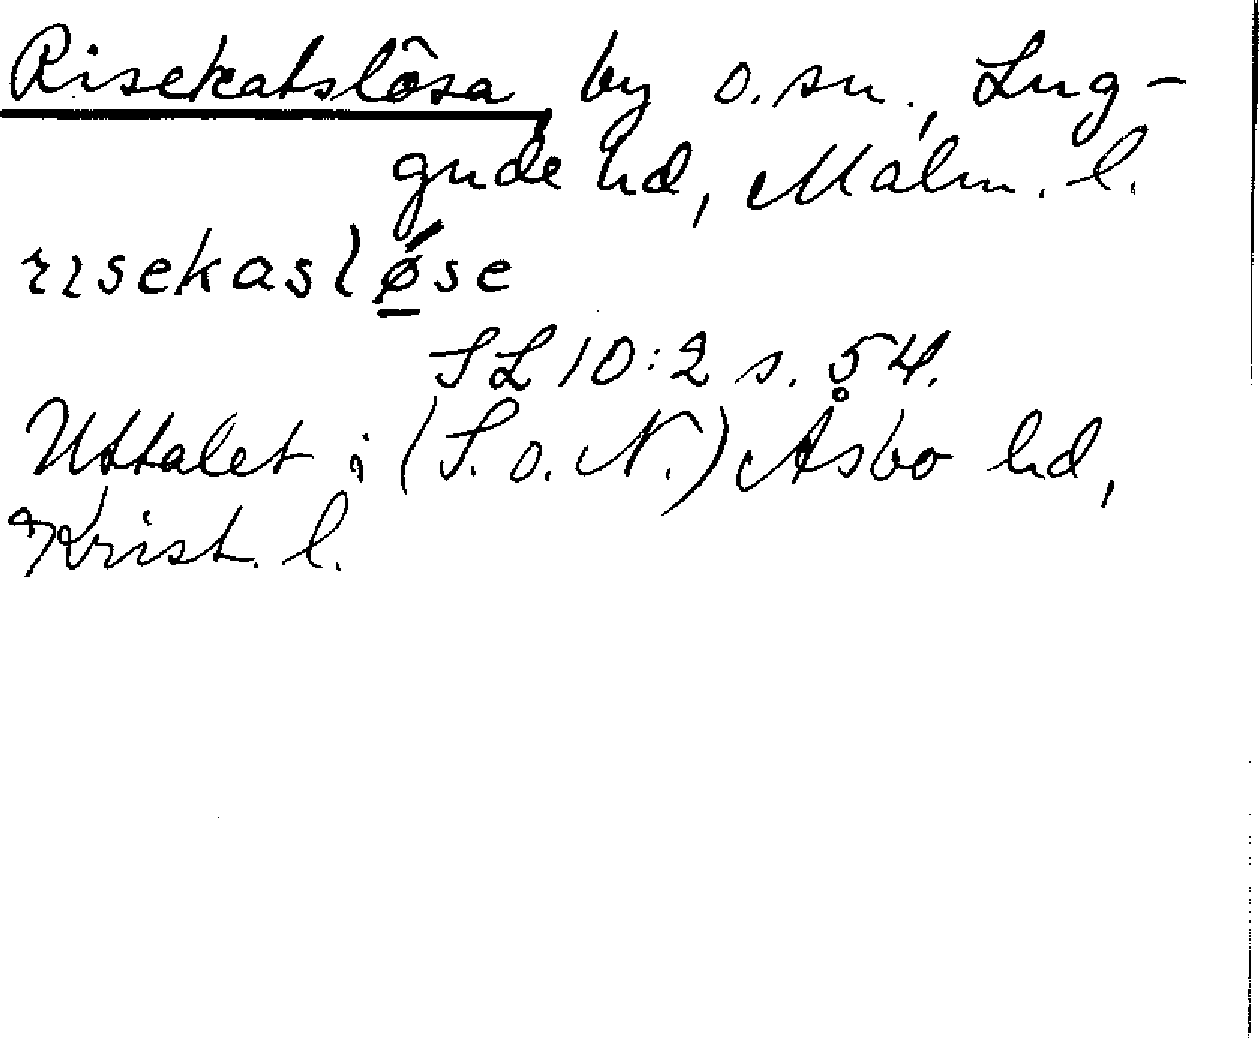 Risekatslösa, by o. sn., Lug-
gude hd, Malm. l.
rısekaslǿ̲se
SL 10:2 s. 54.
Uttalet i (S. o. N.) Åsbo hd,
Krist. l.